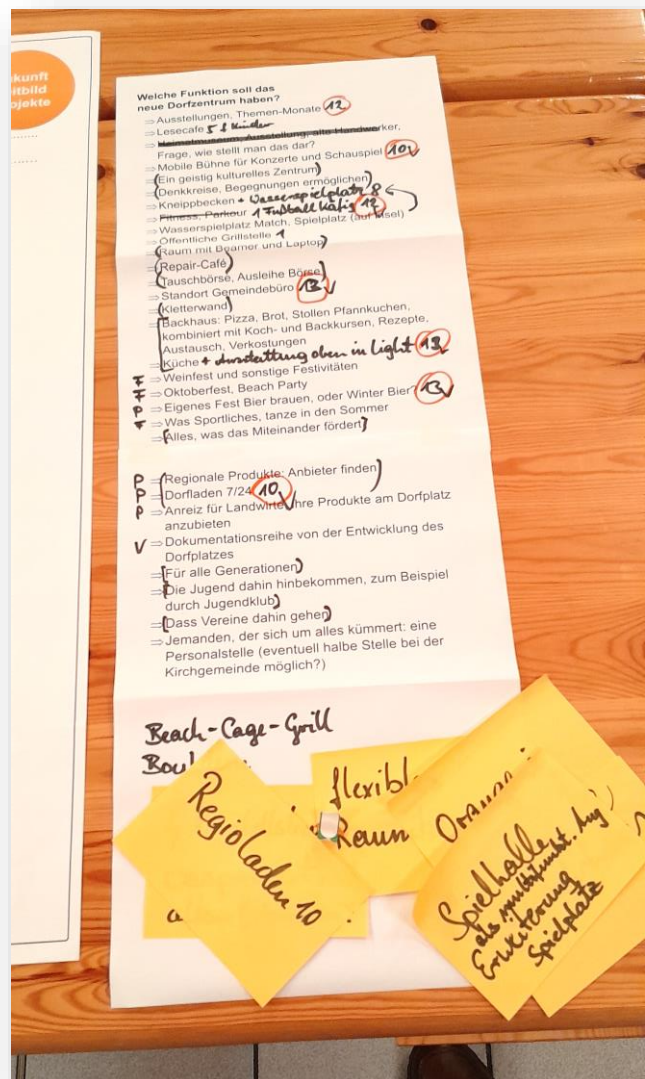 kunft
itbild
ojekte
Welche Funktion soll das
neue Dorfzentrum haben?
⇒ Ausstellungen, Themen-Monate 12
⇒ Lesecafe 5 f Kinder
⇒ Heimatmuseum, Ausstellung, alte Handwerker,
Frage, wie stellt man das dar?
⇒ Mobile Bühne für Konzerte und Schauspiel 10
⇒ (Ein geistig kulturelles Zentrum)
(Denkkreise, Begegnungen ermöglichen)
⇒ Kneippbecken + Wasserspielplatz 8
⇒ Fitness, Parkour 1 Fußballkäfig 12
⇒ Wasserspielplatz Match, Spielplatz (auf Insel)
⇒ Öffentliche Grillstelle 1
(Raum mit Beamer und Laptop)
⇒ (Repair-Café)
⇒ (Tauschbörse, Ausleihe Börse)
⇒ Standort Gemeindebüro 13
⇒ (Kletterwand)
⇒ Backhaus: Pizza, Brot, Stollen Pfannkuchen,
kombiniert mit Koch- und Backkursen, Rezepte,
Austausch, Verkostungen
⇒ Küche + Ausstattung oben in Light 13
F ⇒ Weinfest und sonstige Festivitäten
F ⇒ Oktoberfest, Beach Party
P ⇒ Eigenes Fest Bier brauen, oder Winter Bier? 13
F ⇒ Was Sportliches, tanze in den Sommer
⇒ [Alles, was das Miteinander fördert]
P ⇒ (Regionale Produkte: Anbieter finden)
P ⇒ Dorfladen 7/24 10
P ⇒ Anreiz für Landwirte ihre Produkte am Dorfplatz
anzubieten
V ⇒ Dokumentationsreihe von der Entwicklung des
Dorfplatzes
⇒ [Für alle Generationen)
⇒ [Die Jugend dahin hinbekommen, zum Beispiel
durch Jugendklub)
⇒ [Dass Vereine dahin gehen)
⇒ Jemanden, der sich um alles kümmert: eine
Personalstelle (eventuell halbe Stelle bei der
Kirchgemeinde möglich?)
Beach-Cage-Grill
Regioladen 10
flexibl
Raum
Spielhalle
als multifunkt.
Erweiterung
Spielplatz